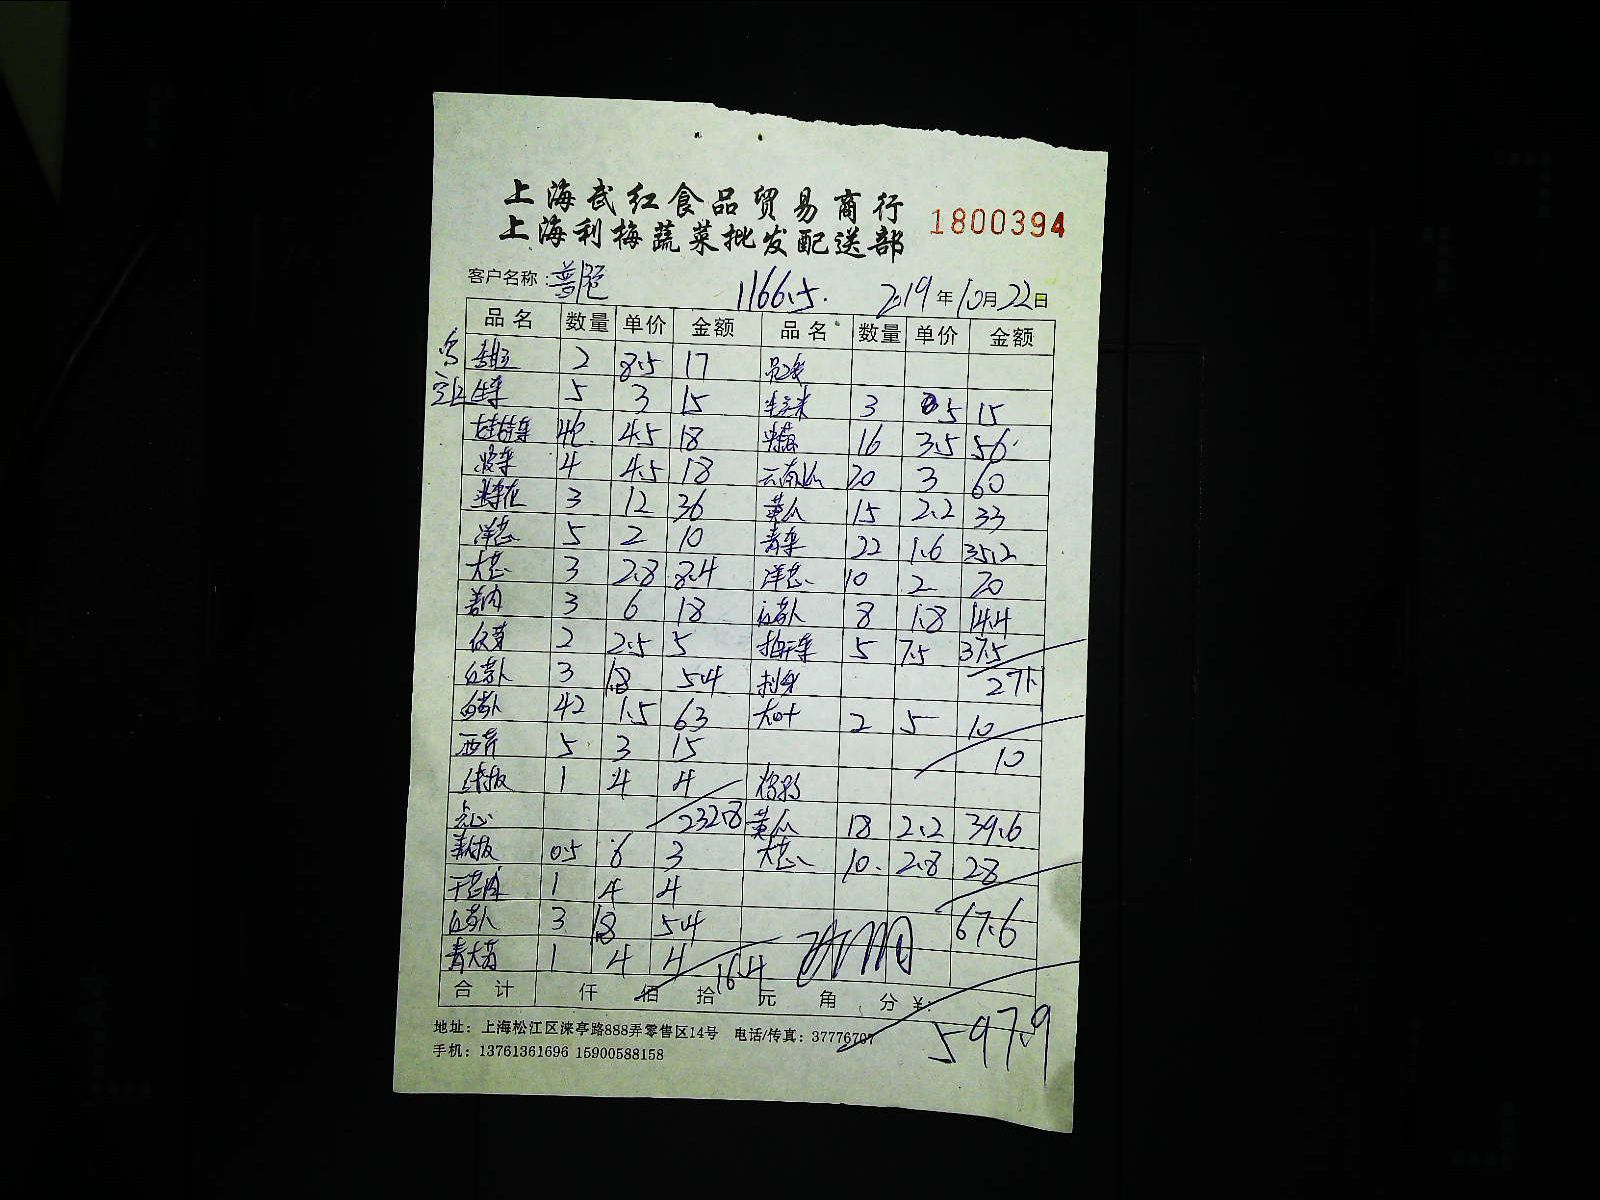 上海武红食品贸易商行
上海利梅蔬菜批发配送部
1800394
客户名称：
1166.5.
2019年10月22日
品名 数量 单价 金额 品名 数量 单价 金额
2 8.5 17
生菜 5 3 15 玉米 3 5 15
娃娃菜 4.5 18 16 3.5 56
4 4.5 18 云南 20 3 60
3 12 36 黄瓜 15 2.2 33
洋葱 5 2 10 青菜 22 1.6 35.2
大葱 3 2.8 8.4 洋葱 10 2 20
姜肉 3 6 18 红萝卜 8 1.8 14.4
2 2.5 5 5 7.5 37.5
红萝卜 3 1.8 5.4 刺身 271
白萝卜 42 1.5 63 大叶 2 5 10
西芹 5 3 15 10
1 4 4
点心 232.8 黄瓜 18 2.2 39.6
0.5 6 3 大葱 10. 2.8 28
1 4 4
红萝卜 3 1.8 5.4 67.6
1 4 4 16.4
合计 仟 佰 拾 元 角 分 ¥:
597.9
地址：上海松江区涞亭路888弄零售区14号 电话/传真：37776707
手机：13761361696 15900588158